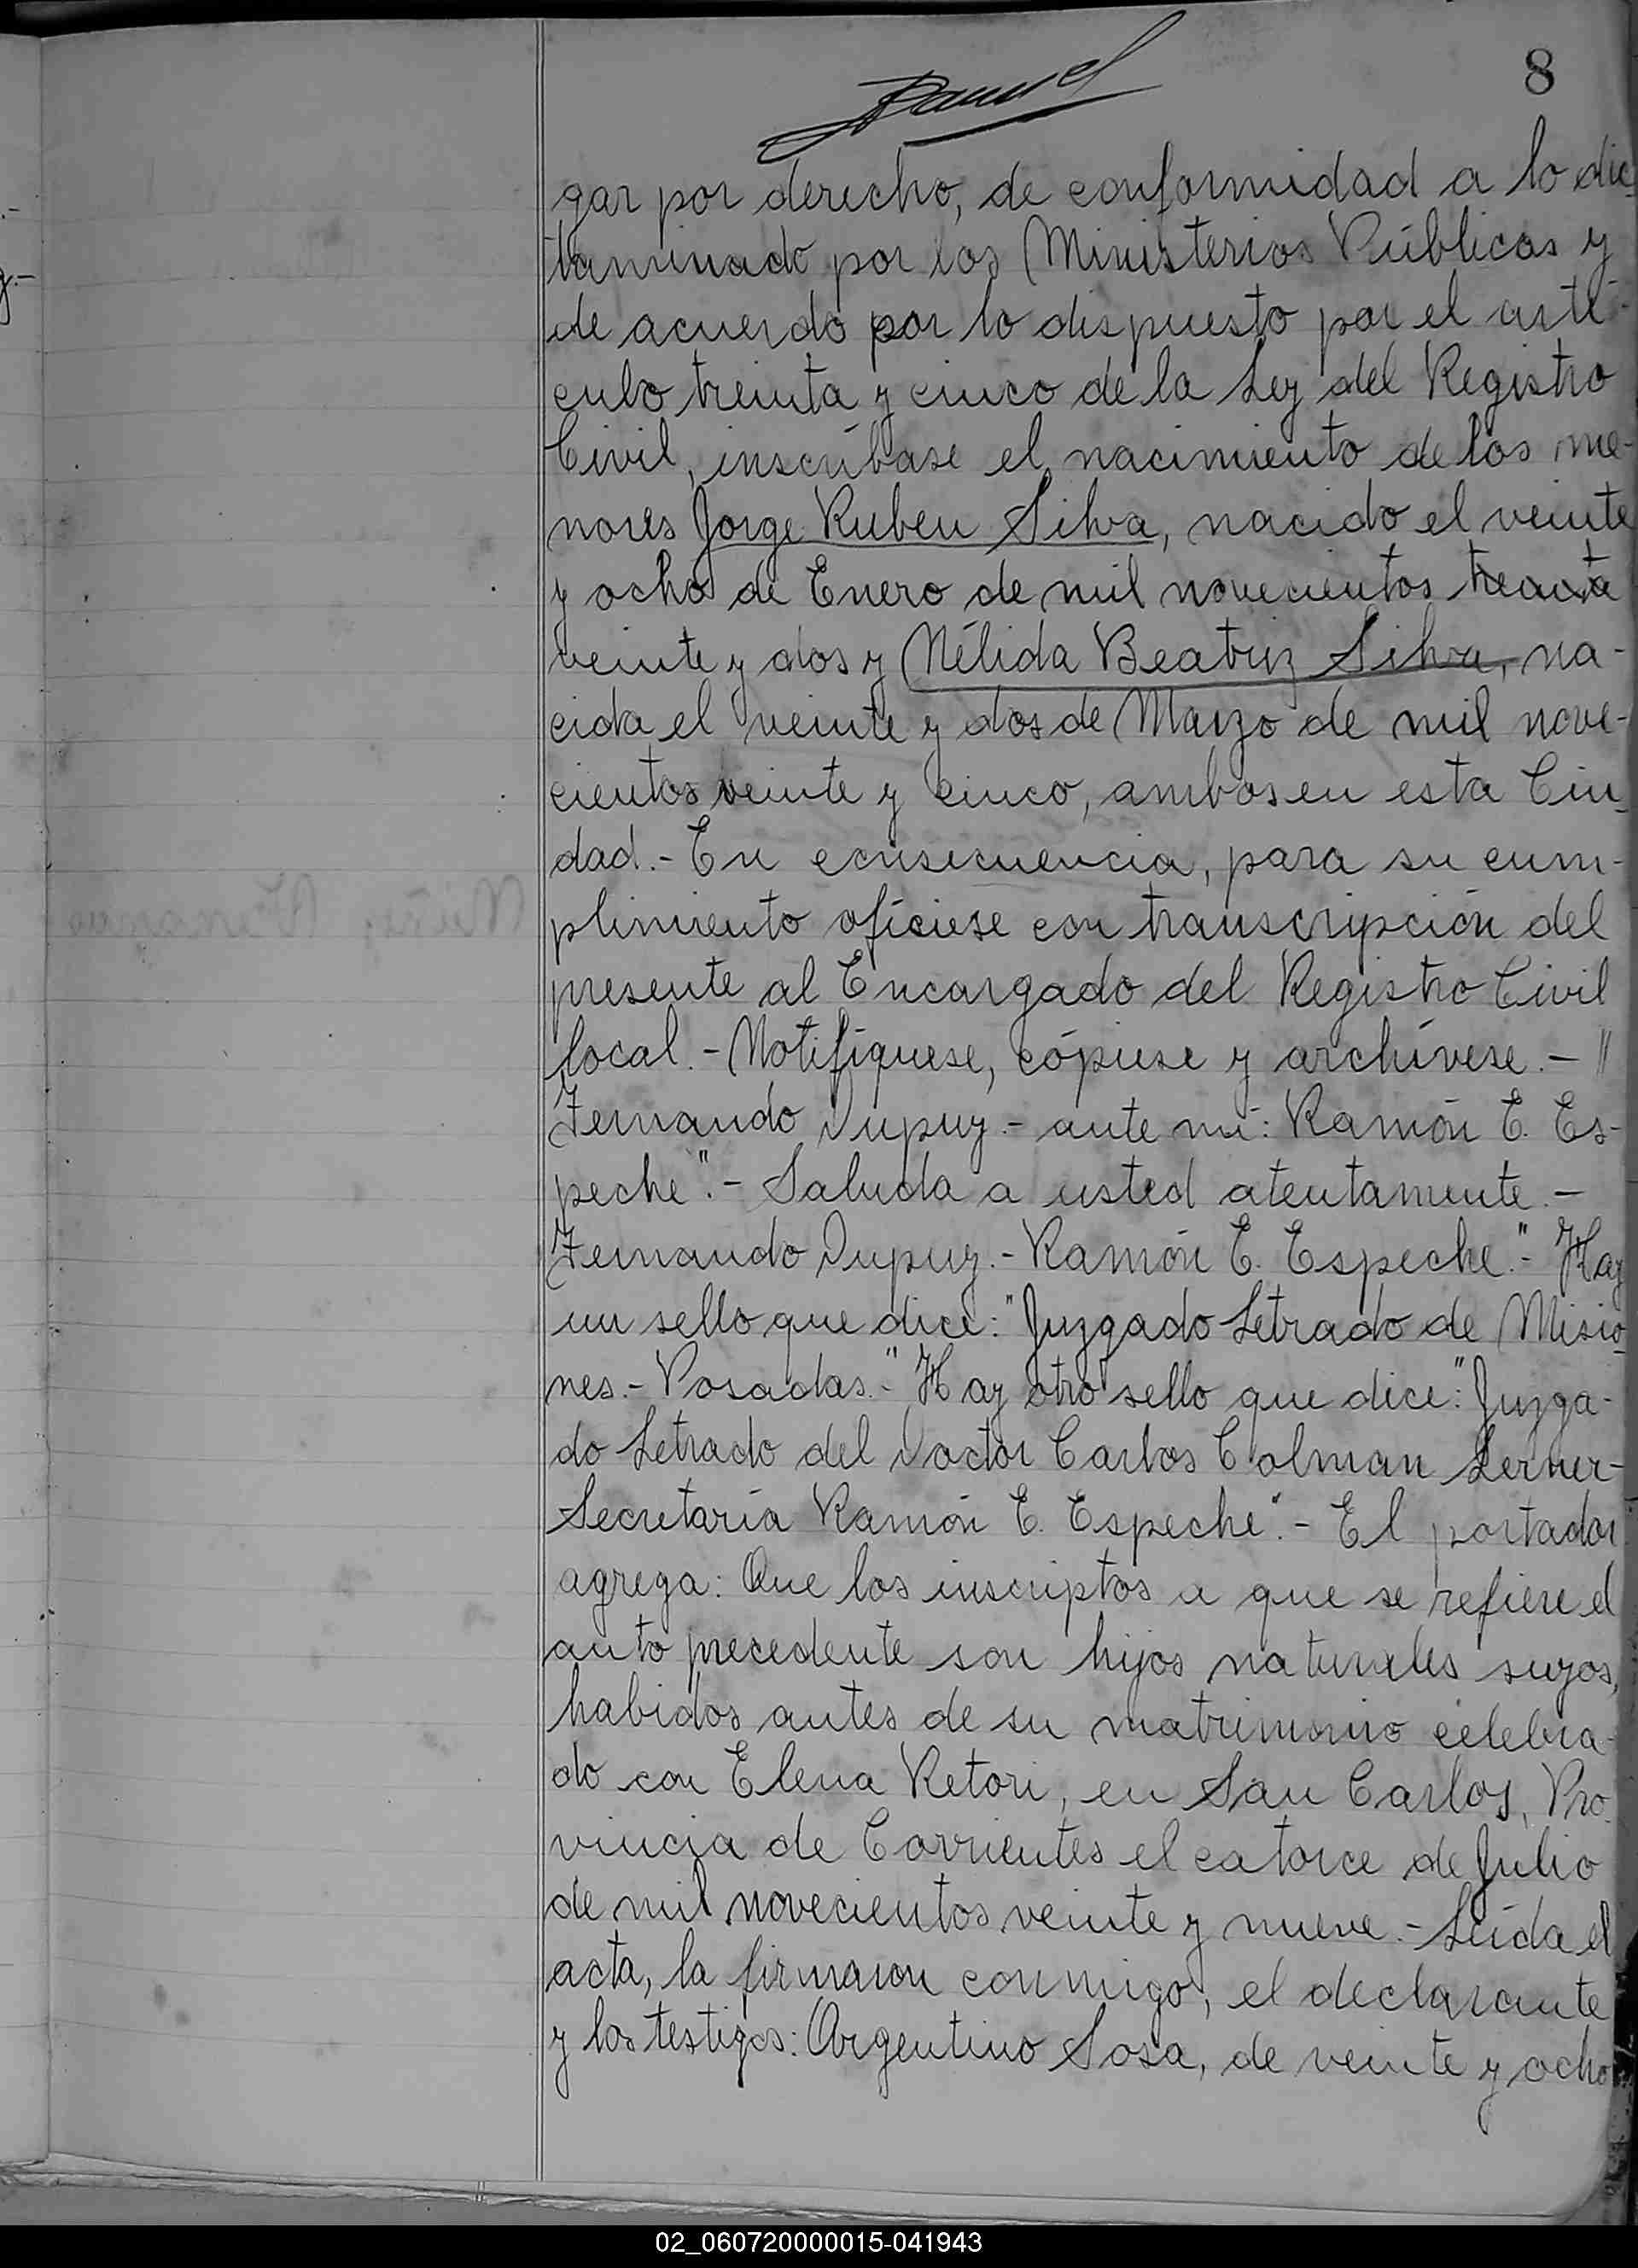 8
gar por derecho, de conformidad a lo dic-
taminado por los Ministerios Públicos y
de acuerdo por lo dispuesto por el artí-
culo treinta y cinco de la Ley del Registro
Civil, inscríbase el nacimiento de los me-
nores Jorge Ruben Silva, nacido el veinte
y ocho de Enero de mil novecientos
veinte y dos y Nélida Beatriz Silva, na-
cida el veinte y dos de Marzo de mil nove-
cientos veinte y cinco, ambos en esta Ciu-
dad.- En consecuencia, para su cum-
plimiento ofíciese con transcripción del
presente al Encargado del Registro Civil
local.- Notifíquese, cópiese y archívese.- "
Fernando Dupuy.- ante mí: Ramón E. Es-
peche".- Saluda a usted atentamente.-
Fernando Dupuy.- Ramón E. Espeche".- Hay
un sello que dice: "Juzgado Letrado de Misio-
nes.- Posadas.-" Hay otro sello que dice: "Juzga-
do Letrado del Doctor Carlos Colman Lerner-
Secretaría Ramón E. Espeche".- El portador
agrega: Que los inscriptos a que se refiere el
auto precedente son hijos naturales suyos,
habidos antes de su matrimonio celebra-
do con Elena Retori, en San Carlos, Pro-
vincia de Corrientes el catorce de Julio
de mil novecientos veinte y nueve.- Leída el
acta, la firmaron conmigo, el declarante
y los testigos: Argentino Sosa, de veinte y ocho
02_060720000015-041943